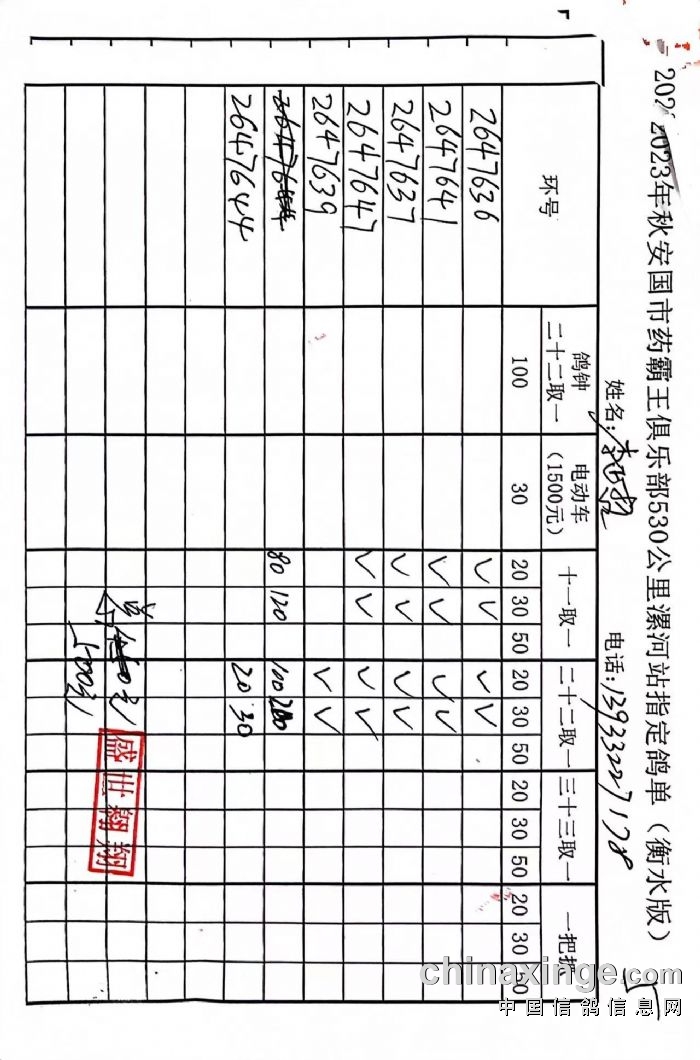 2023年秋安国市药霸王俱乐部530公里漯河站指定鸽单（衡水版）
姓名: 电话:13933227178
环号 鸽钟 二十二取一 电动车 (1500元) 十一取一 二十二取一 三十三取一 一把抓
100 30 20 30 50 20 30 50 20 30 50 20 30 50
2647636 ✓ ✓ ✓ ✓
2647641 ✓ ✓ ✓ ✓
2647637 ✓ ✓ ✓ ✓
2647647 ✓ ✓ ✓ ✓
2647639 ✓ ✓
80 120 100 200
2647644 20 30
盛世翱翔
5
chinaxinge.com
中国信鸽信息网